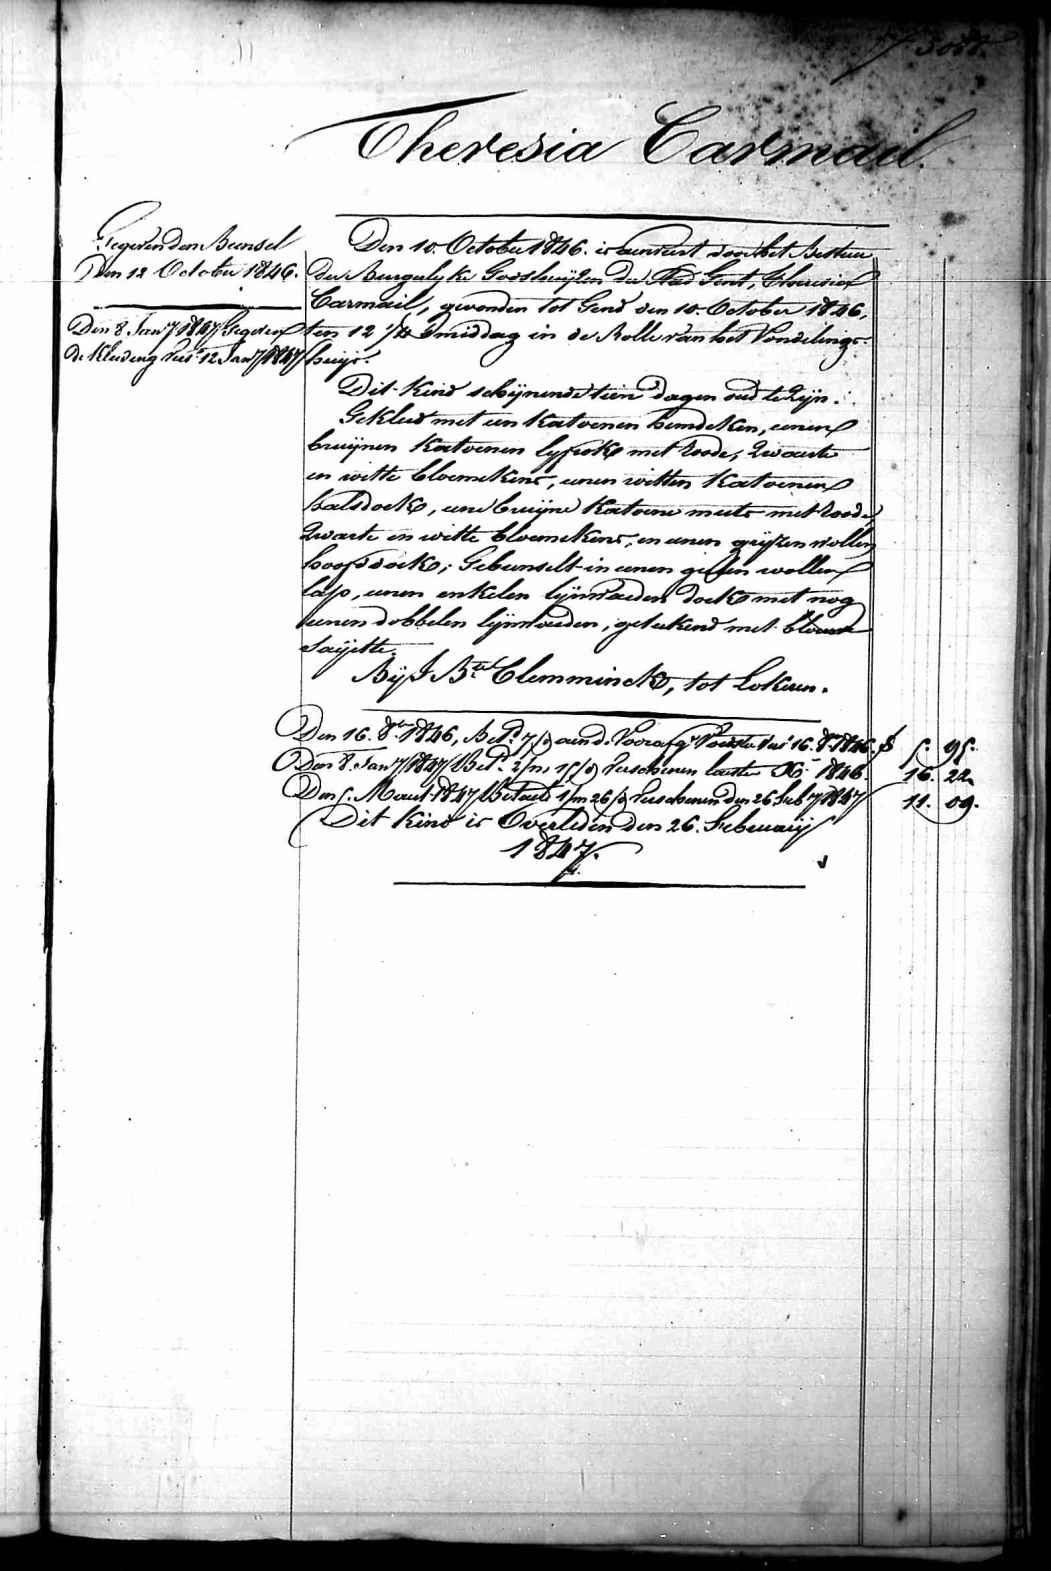 Theresia Carmail.
Gegeven den Bunsel
Den 12 October 1846.
Den 8 Jan^y 1847 Gegeven
de Kleeding Vers^t 12 Jan^y 1847
Den 10 October 1846. is aenveert door het Bestuer
der Burgerlyke Godshuyzen der Stad Gent, Theresia
Carmail, gevonden tot Gend den 10 October 1846,
ten 12 1/4 smiddag in de Rolle van het Vondelings-
huijs.
Dit kind schijnende tien dagen oud te zijn.
Gekleed met een Katoenen hemdeken, eenen
bruijnen Katoenen lyfrok met roode, zwarte
en witte bloemekens, eenen witten Katoenen
halsdoek, eene bruijne Katoene muts met roode,
zwarte en witte bloemekens, en eenen grijzen wollen
hoofddoek; Gebunselt in eenen gelen wollen
lap, eenen enkelen lijnwaeden doek met nog
eenen dobbelen lijnwaeden, geteekend met blauwe
saijette.
Bij J. B^te Clemminck, tot Lokeren.
Den 16. 8^bre 1846, Bet^d 7/d aen d. Voorafg^e Voedster Vers^t 16. 8^bre 1846. f 5. 95.
Den 8. Jan^y 1847 Bet^d 2/m 15/d Verschenen laeste X^r 1846. 16. 22
Den 5. Maert 1847 Betaeld 1/m 26/d Verschenen den 26 Feb^y 1847 11. 09.
Dit kind is Overleden den 26. Februarij
1847.